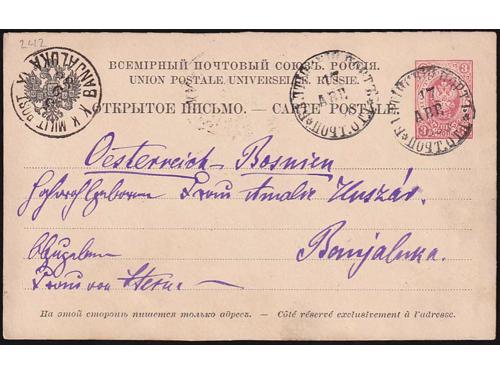 2412
ВСЕМІРНЫЙ ПОЧТОВЫЙ СОЮЗЪ. РОССІЯ.
UNION POSTALE UNIVERSELLE. RUSSIE.
ОТКРЫТОЕ ПИСЬМО. — CARTE POSTALE.
K. K. MILIT. POST BANJALUKA
17
АВГ.
17
АВГ.
3
Oesterreich - Bosnien
Hochwohlgeboren Frau Amalie Huszár.
Banjaluka.
Abzugeben
Frau von Sterne
На этой сторонѣ пишется только адресъ. — Côté réservé exclusivement à l'adresse.